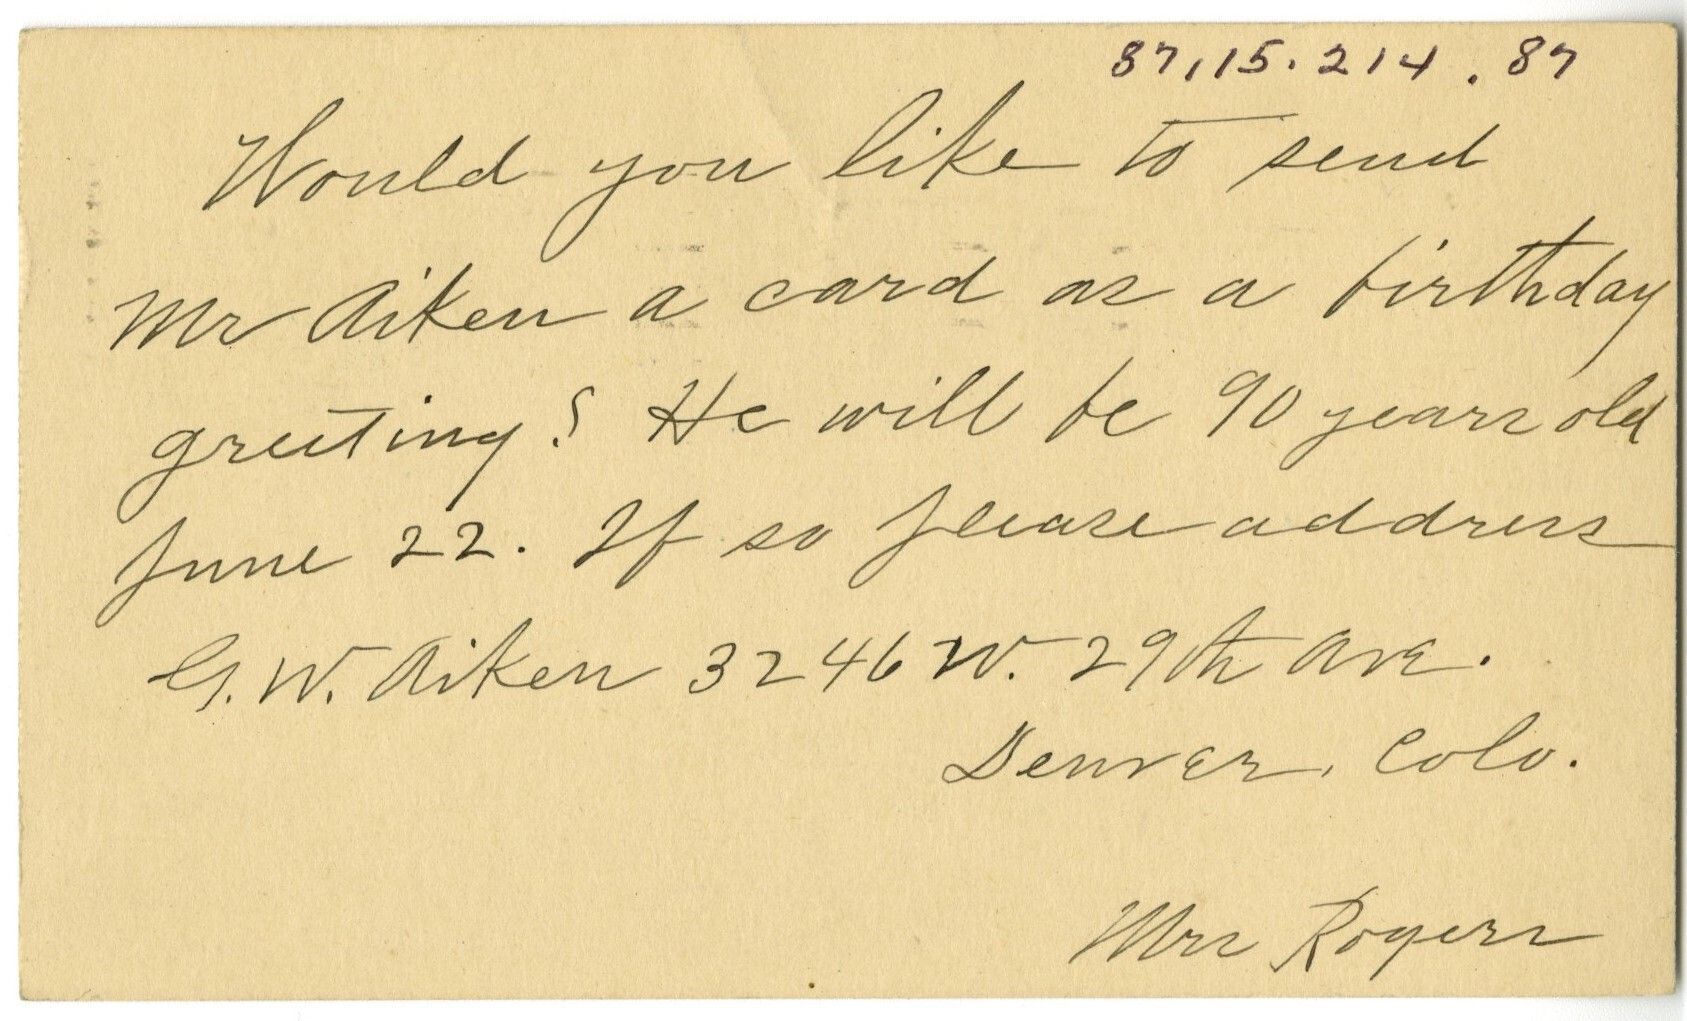 87.15.214.87
Would you like to send
Mr Aiken a card as a birthday
greeting? He will be 90 years old
June 22. If so please address
G. W. Aiken 3246 W. 29th Ave.
Denver, Colo.
Mrs Rogers